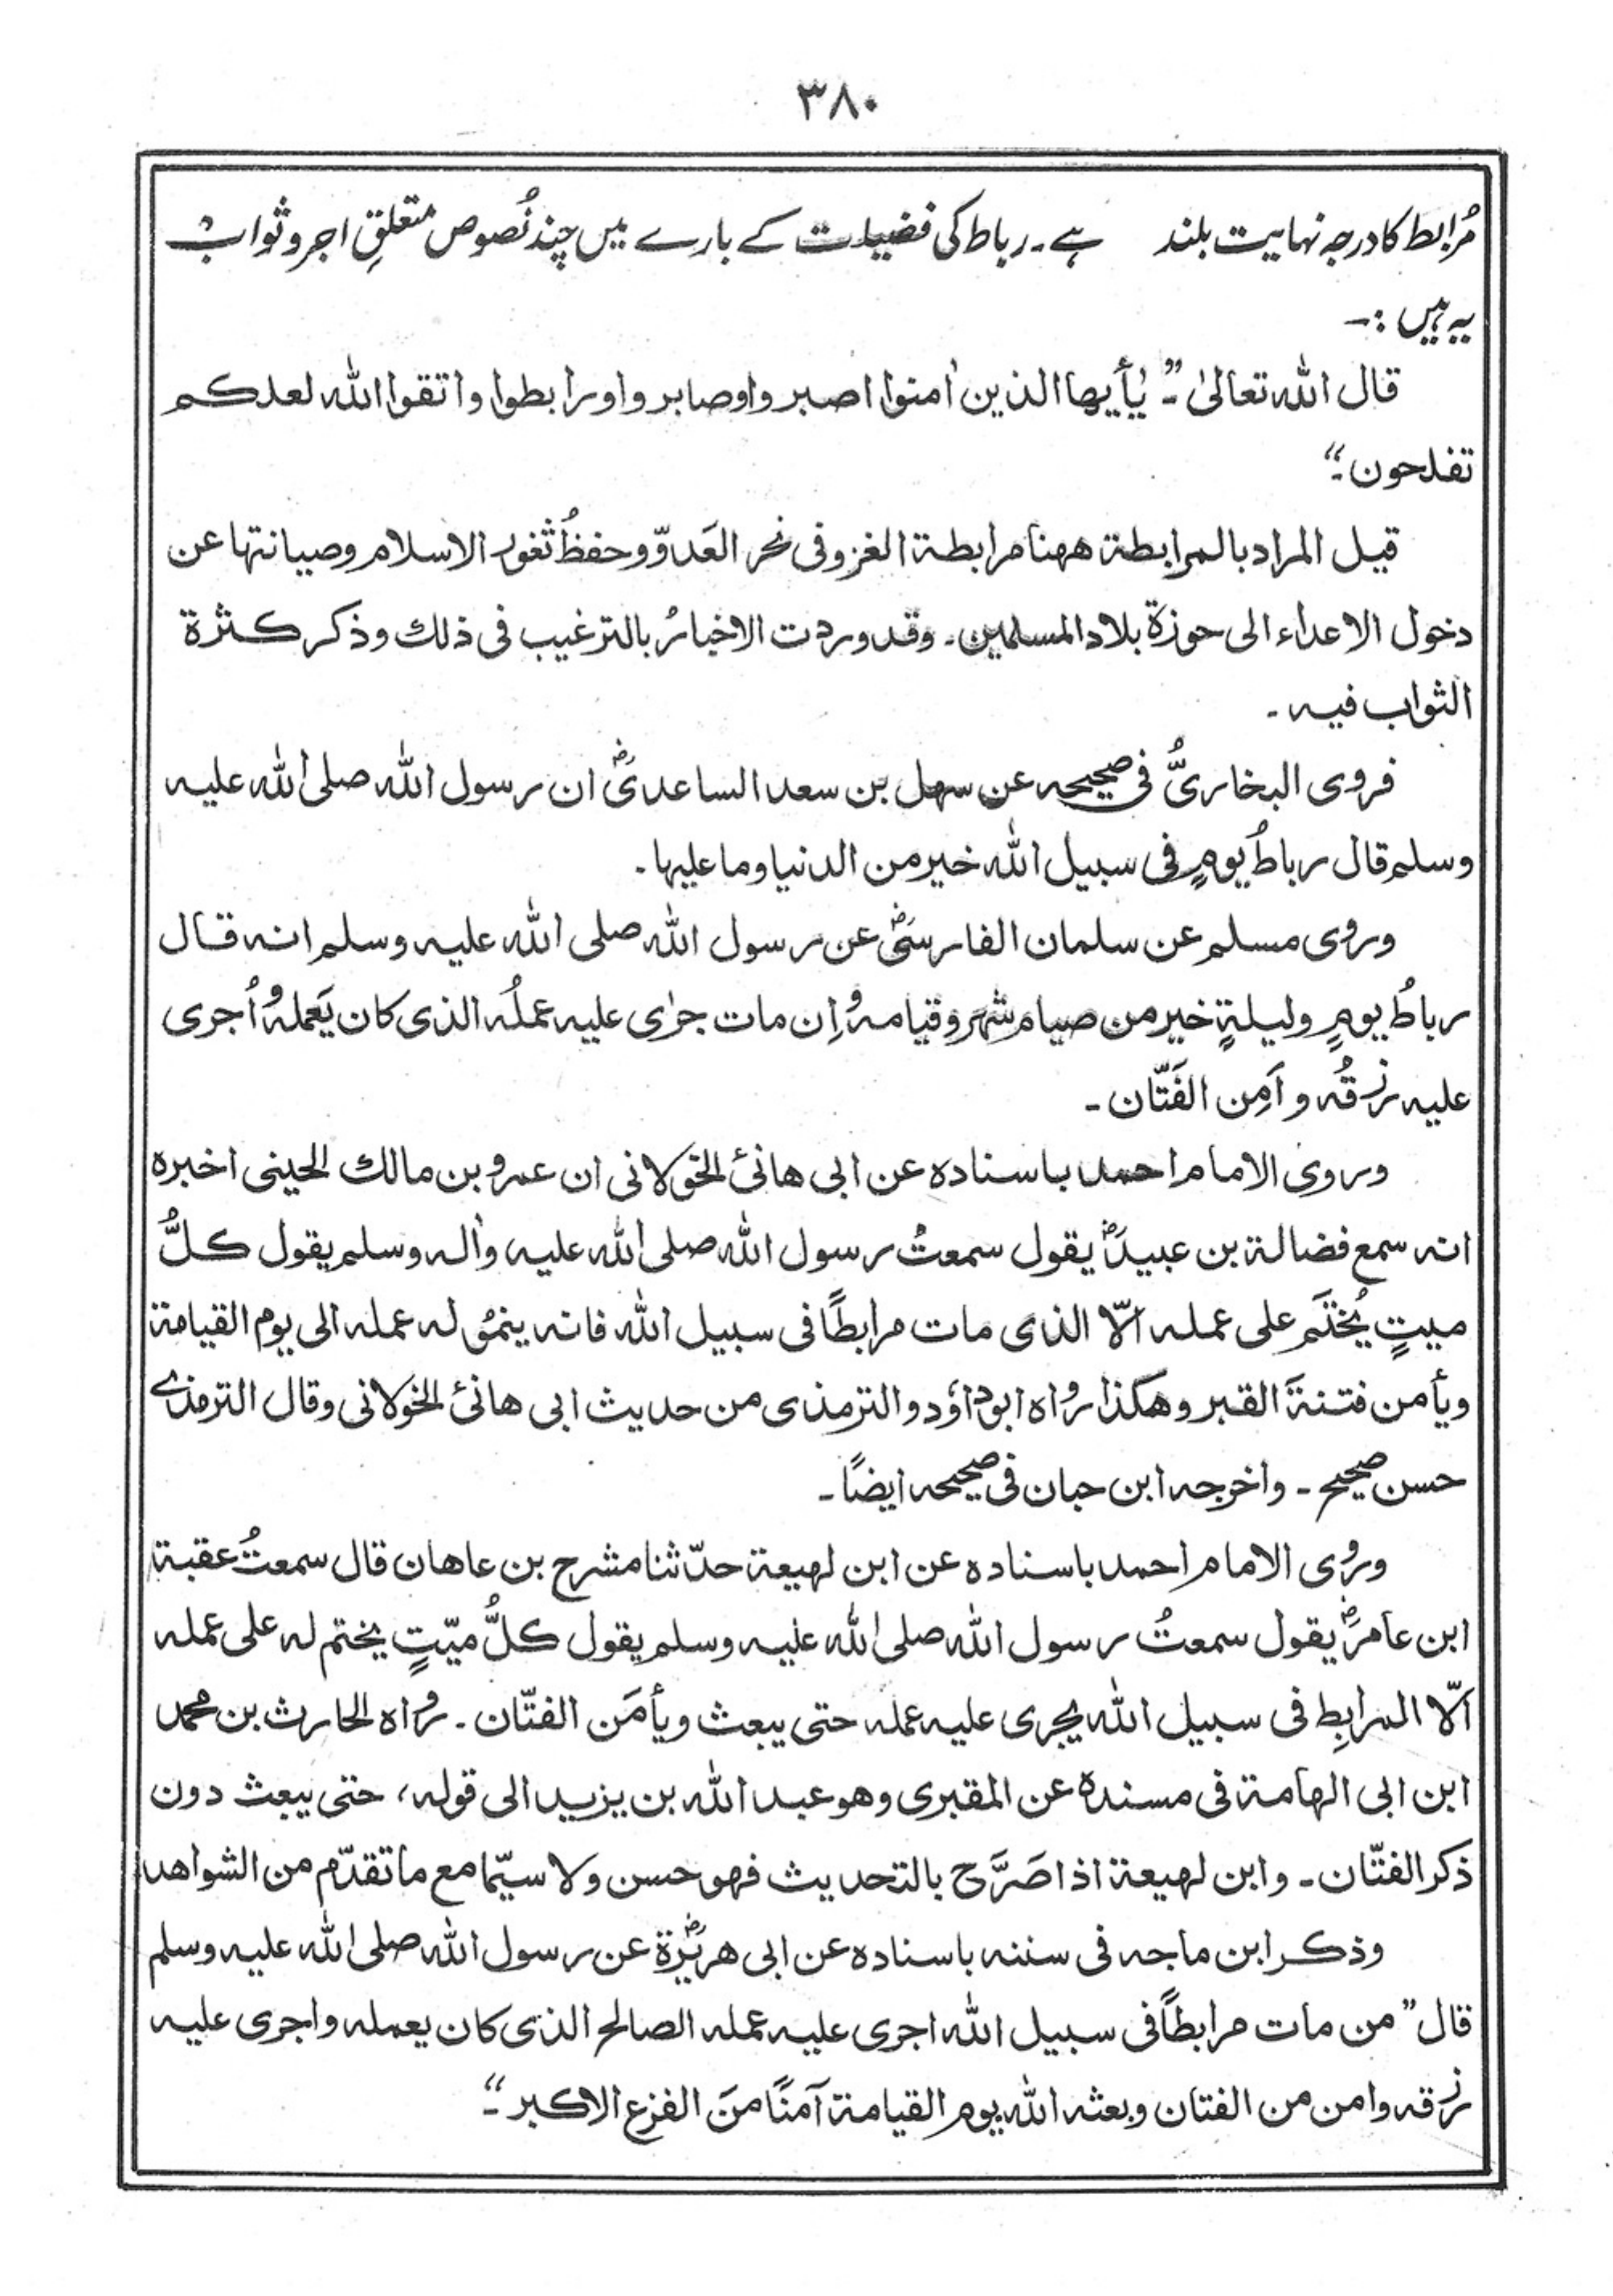 ۳۸۰
مُرابط کا درجہ نہایت بلند ہے۔ رباط کی فضیلت کے بارے میں چند نُصوص متعلقِ اجر و ثواب
یہ ہیں :۔
قال اللہ تعالیٰ ”۔ یٰأیها الذین اٰمنوا اصبروا وصابروا ورابطوا واتقوا اللہ لعلکم
تفلحون۔“
قیل المراد بالمرابطة ههنا مرابطة الغزو فی نحر العَدوّ وحفظُ ثغور الاسلام وصیانتها عن
دخول الاعداء الی حوزة بلاد المسلمین۔ وقد وردت الاخبارُ بالترغیب فی ذلك وذکر کثرة
الثواب فیه ۔
فروی البخاریُّ فی صحیحه عن سهل بن سعد الساعدیؓ ان رسول اللہ صلی اللہ علیه
وسلم قال رباطُ یومٍ فی سبیل اللہ خیر من الدنیا وما علیها ۔
وروی مسلم عن سلمان الفارسیؓ عن رسول اللہ صلی اللہ علیه وسلم انه قال
رباطُ یومٍ ولیلةٍ خیر من صیام شهر وقیامه وإن مات جرٰی علیه عملُه الذی کان یَعمله وأُجری
علیه رزقُه و اَمِن الفَتّان ۔
وروی الامام احمد باسناده عن ابی هانئ الخولانی ان عمرو بن مالك الحینی اخبره
انه سمع فضالة بن عبیدؓ یقول سمعتُ رسول اللہ صلی اللہ علیه واٰله وسلم یقول کلُّ
میتٍ یُختَم علی عمله الّا الذی مات مرابطًا فی سبیل اللہ فانه ینمُو له عمله الی یوم القیامة
ویأمن فتنةَ القبر وهکذا رواه ابوداؤد والترمذی من حدیث ابی هانئ الخولانی وقال الترمذی
حسن صحیح ۔ واخرجه ابن حبان فی صحیحه ایضًا ۔
وروی الامام احمد باسناده عن ابن لهیعة حدّثنا مشرح بن عاهان قال سمعتُ عقبة
ابن عامرؓ یقول سمعتُ رسول اللہ صلی اللہ علیه وسلم یقول کلُّ میّتٍ یختم له علی عمله
الّا المرابِط فی سبیل اللہ یجری علیه عمله حتی یبعث ویأمَن الفتّان ۔ رواه الحارث بن محمد
ابن ابی الهامة فی مسنده عن المقبری وهو عبد اللہ بن یزید الی قوله، حتی یبعث دون
ذکر الفتّان ۔ وابن لهیعة اذا صَرَّح بالتحدیث فهو حسن ولا سیّما مع ما تقدّم من الشواهد
وذکر ابن ماجه فی سننه باسناده عن ابی هریرةؓ عن رسول اللہ صلی اللہ علیه وسلم
قال ”من مات مرابطًا فی سبیل اللہ اجری علیه عمله الصالح الذی کان یعمله واجری علیه
رزقه وامن من الفتان وبعثه اللہ یوم القیامة آمنًا منَ الفزع الاکبر۔“